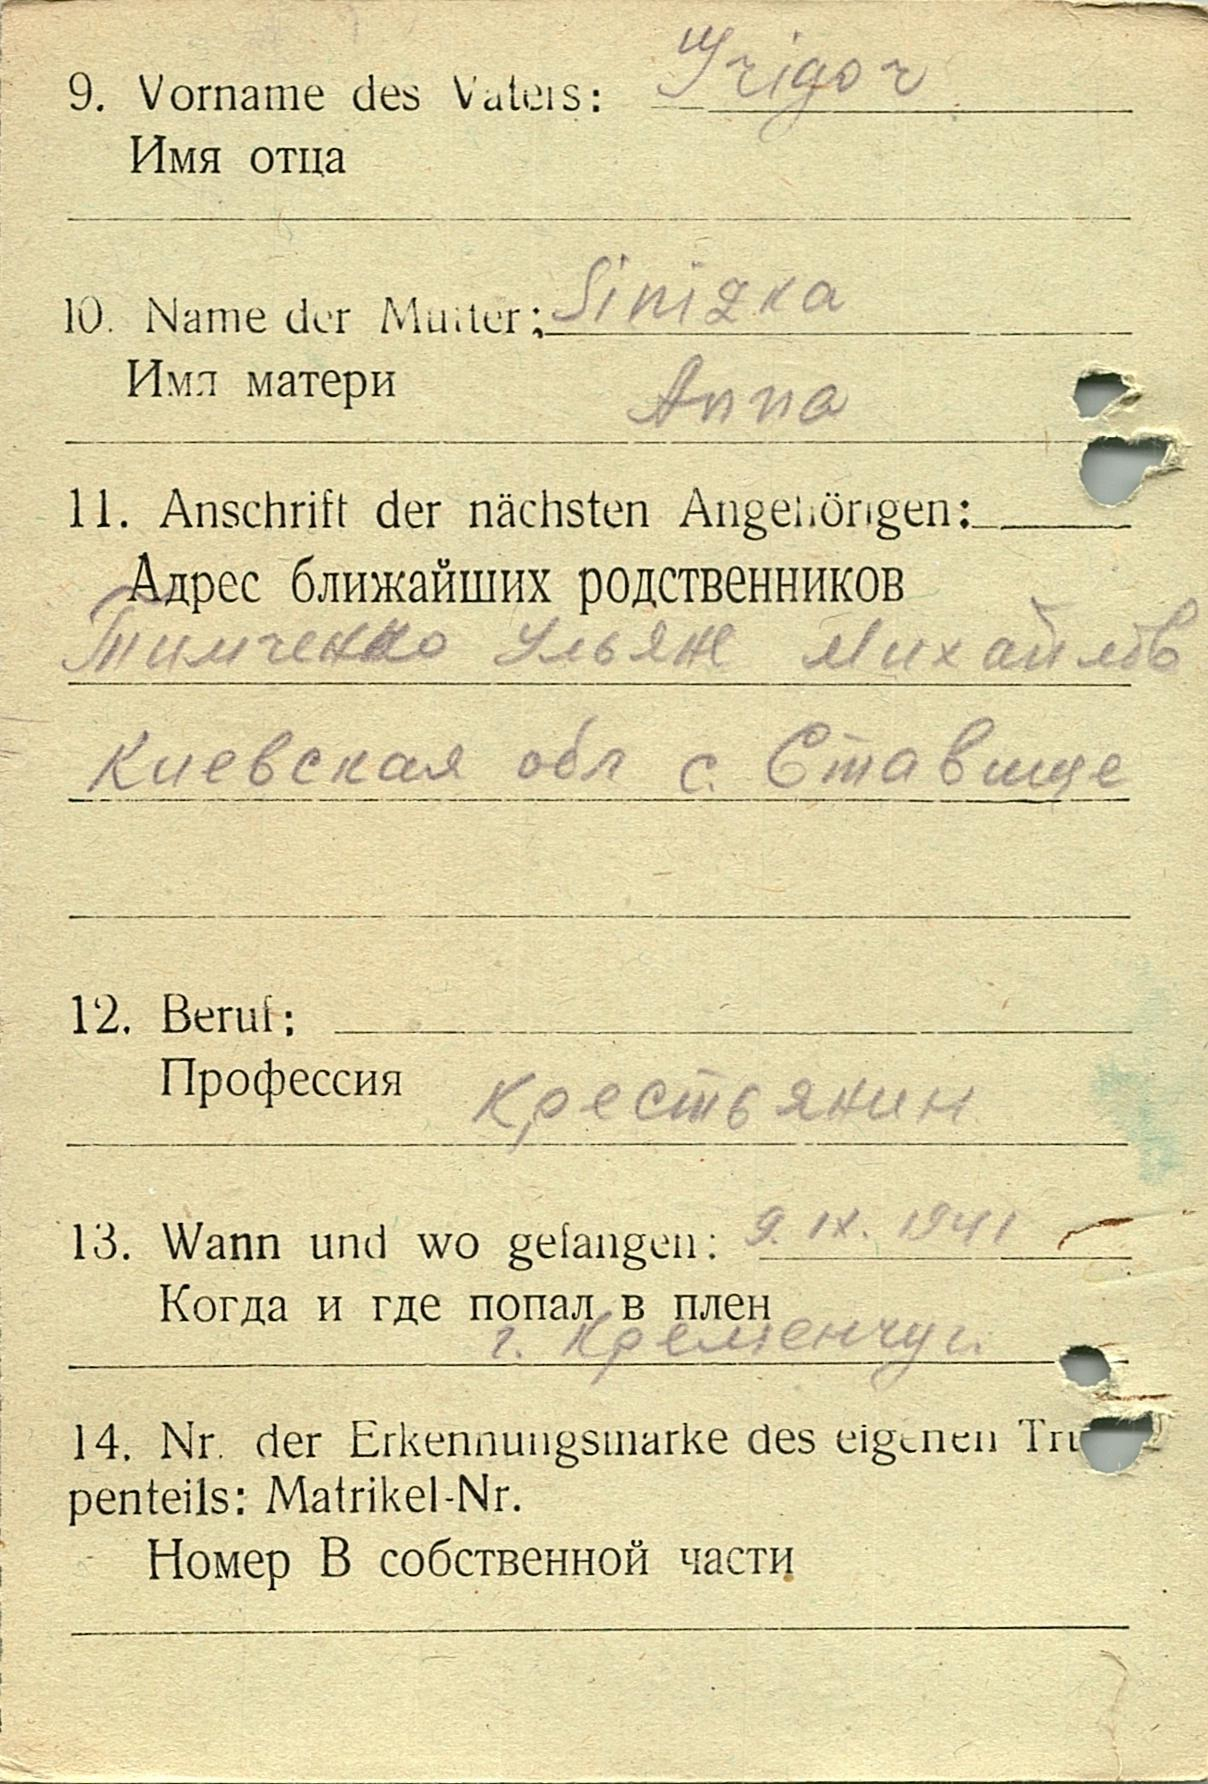 9. Vorname des Vaters: Grigor
Имя отца
10. Name der Mutter: Sinizka
Имя матери Anna
11. Anschrift der nächsten Angehörigen:
Адрес ближайших родственников
Тимченко Ульян Михайлов
Киевская обл с. Ставище
12. Beruf:
Профессия Крестьянин
13. Wann und wo gefangen: 9. IX. 1941
Когда и где попал в плен
г. Кременчуг.
14. Nr. der Erkennungsmarke des eigenen
penteils: Matrikel-Nr.
Номер В собственной части